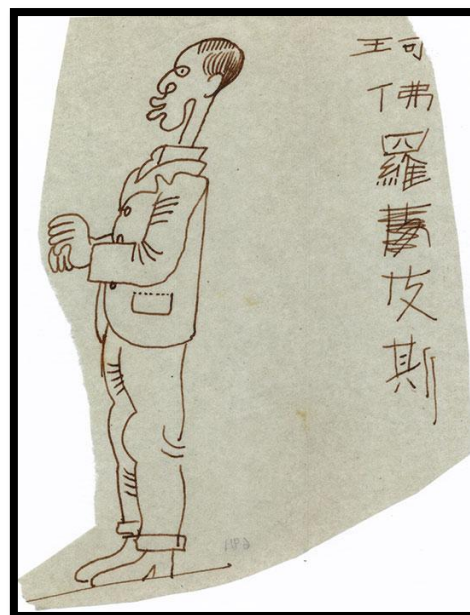 珂佛羅皮斯